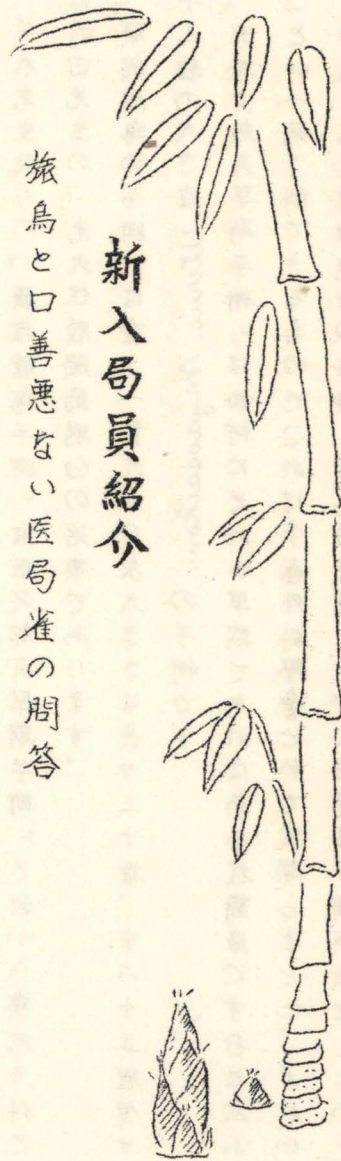 新入局員紹介
旅鳥と口善悪ない医局雀の問答